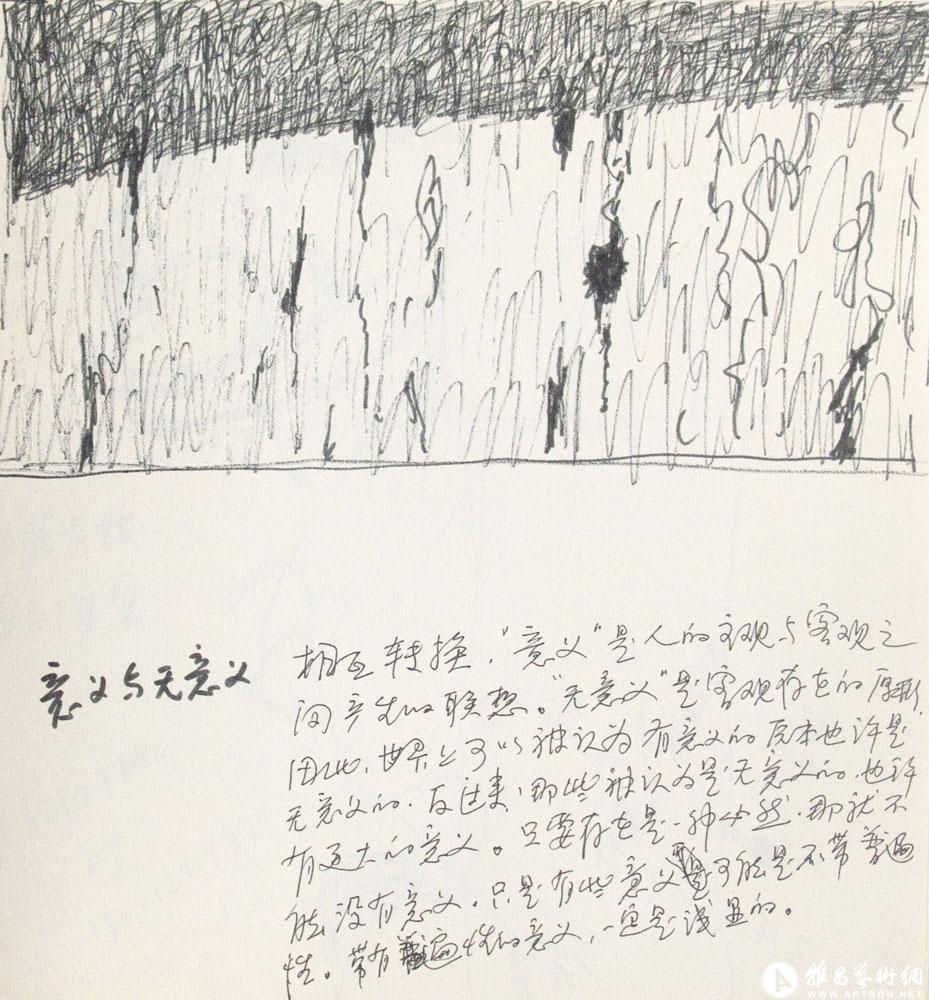 意义与无意义
相互转换，“意义”是人的主观与客观之
间产生的联想。“无意义”是客观存在的原形，
因此，世界上可以被认为有意义的原本也许是
无意义的。反过来，那些被认为是无意义的，也许
有更大的意义。只要存在是一种必然，那就不
能没有意义。只是有些意义可能是不带普遍
性。带有普遍性的意义，一定是浅显的。
雅昌艺術網
WWW.ARTRON.NET